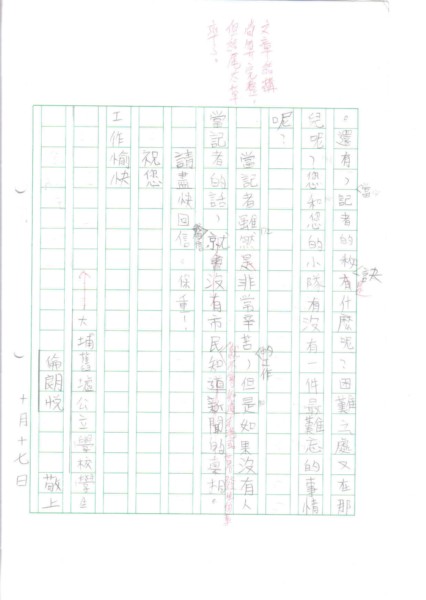 。還有，記者的秘訣有什麼呢？困難之處又在那
兒呢？您和您的小隊有沒有一件最難忘的事情
呢？
當記者雖然是非常辛苦，但是如果沒有人
當記者的話，就會沒有市民知道新聞的真相。
請盡快回信。保重！
祝您
工作愉快
大埔舊墟公立學校學生
敬上
十月十七日
文章結構
尚算完整，
但結尾太草
率了。
的工作